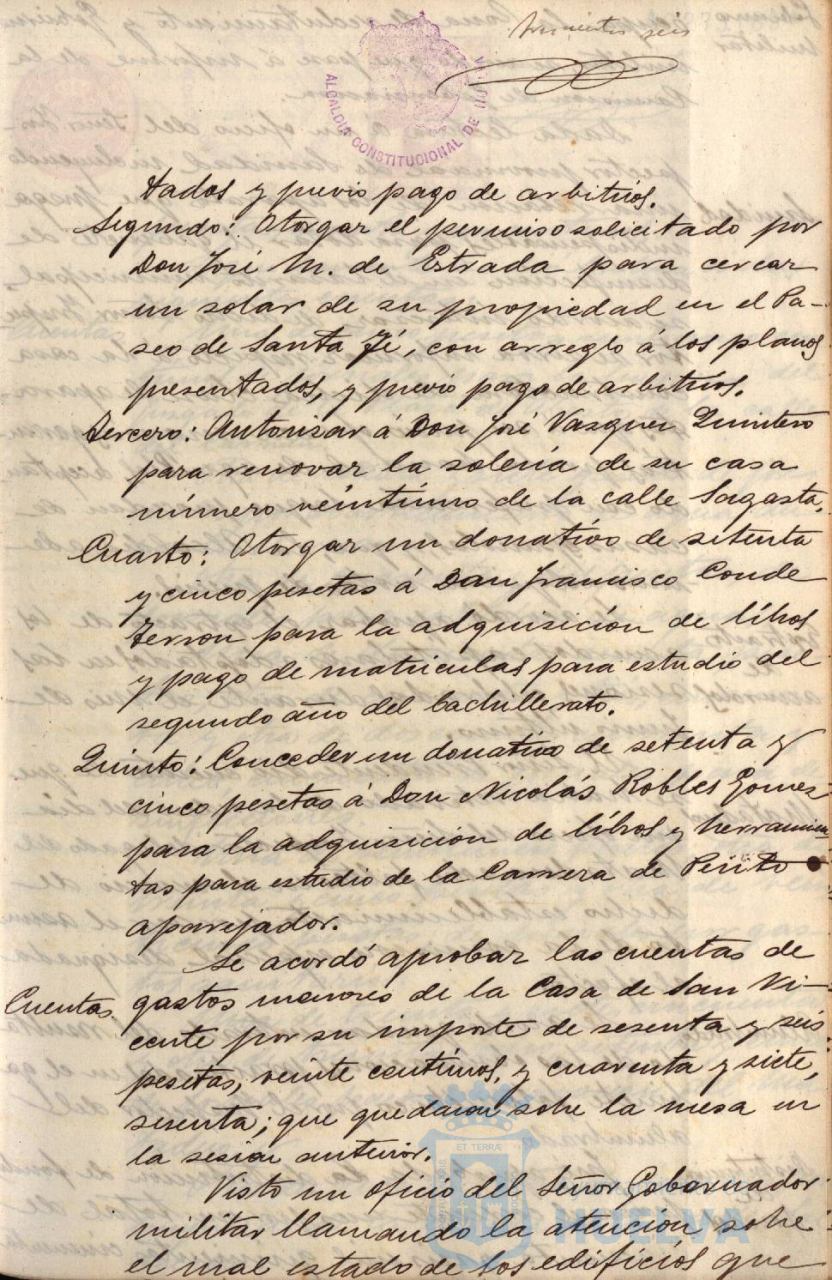 trescientos seis
ALCALDIA CONSTITUCIONAL DE HUELVA
tados y previo pago de arbitrios.
Segundo: Otorgar el permiso solicitado por
Don José M. de Estrada para cercar
un solar de su propiedad en el Pa-
seo de Santa Fé, con arreglo á los planos
presentados, y previo pago de arbitrios.
Tercero: Autorizar á Don José Vazquez Quintero
para renovar la solería de su casa
número veintiuno de la calle Sagasta.
Cuarto: Otorgar un donativo de setenta
y cinco pesetas á Don Francisco Conde
Terron para la adquisición de libros
y pago de matriculas para estudio del
segundo año del bachillerato.
Quinto: Conceder un donativo de setenta y
cinco pesetas á Don Nicolás Robles Gomez
para la adquisición de libros y herramien
tas para estudio de la Carrera de Perito
aparejador.
Se acordó aprobar las cuentas de
Cuentas. gastos menores de la Casa de San Vi-
cente por su importe de sesenta y seis
pesetas, veinte centimos, y cuarenta y siete,
sesenta; que quedaron sobre la mesa en
la sesion anterior.
Visto un oficio del Señor Gobernador
militar llamando la atención sobre
el mal estado de los edificios que
ET TERRÆ
HUELVA